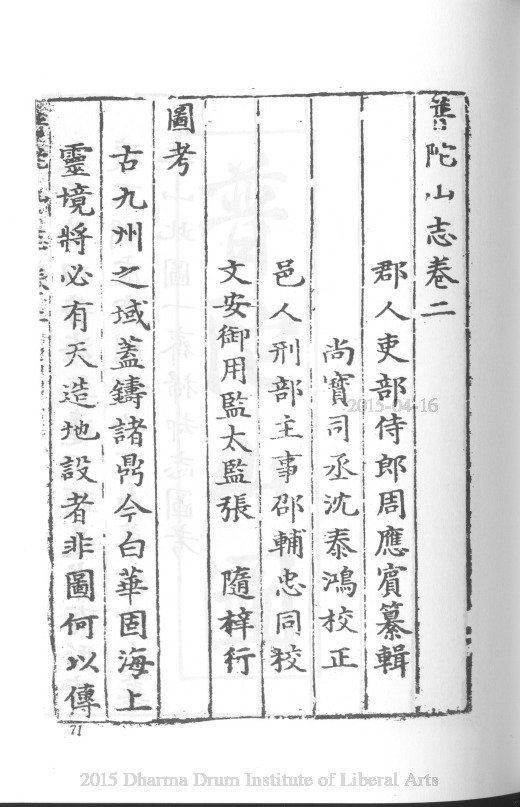 普陀山志卷二
郡人吏部侍郎周應賓纂輯
尚寶司丞沈泰鴻校正
邑人刑部主事邵輔忠同校
文安御用監太監張 隨梓行
圖考
古九州之域蓋鑄諸鼎今白華固海上
靈境將必有天造地設者非圖何以傳
71
2015-04-16
2015 Dharma Drum Institute of Liberal Arts